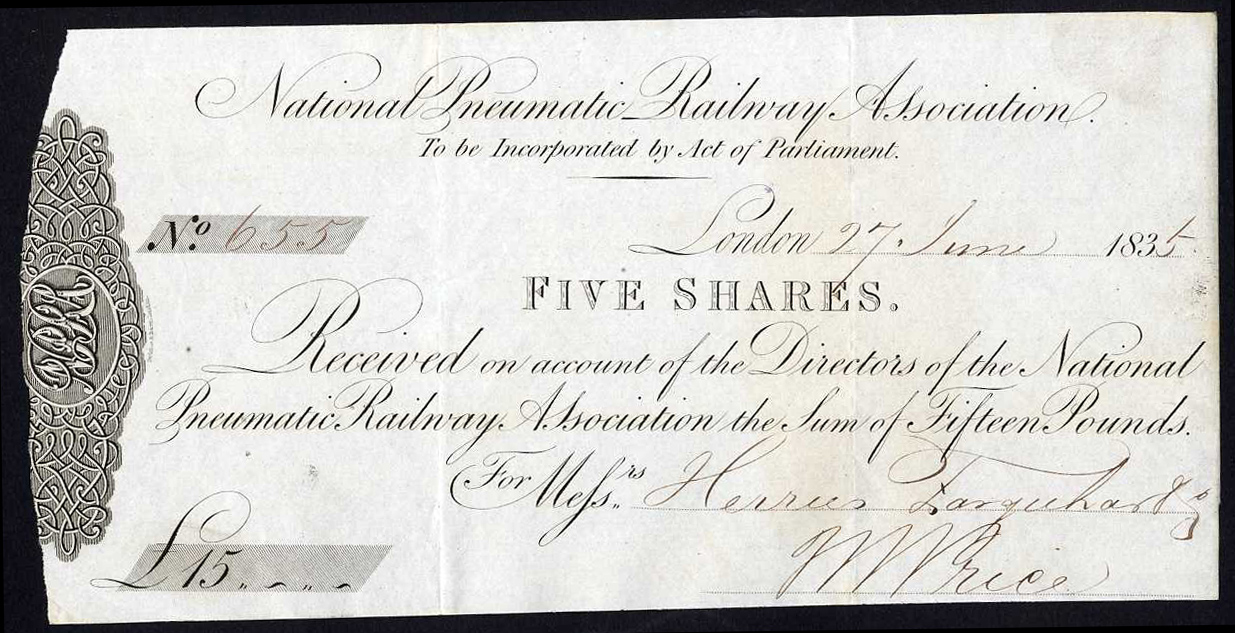 National Pneumatic Railway Association.
To be Incorporated by Act of Parliament.
No. 655
London 27. June 1835
FIVE SHARES.
Received on account of the Directors of the National
Pneumatic Railway Association the Sum of Fifteen Pounds.
For Messrs. Herries Farquhar & Co
W Price
£15 „ - „ -